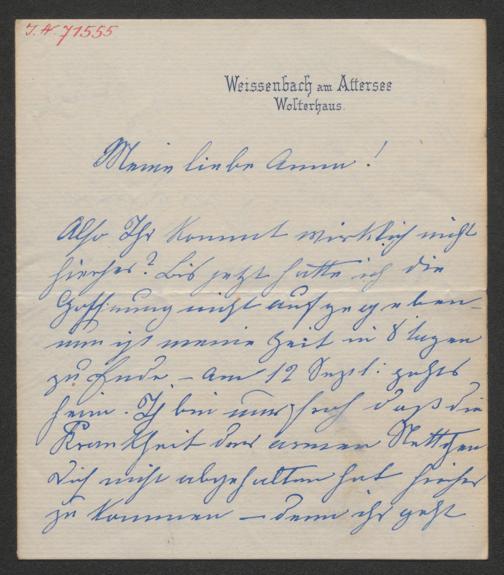 J. N. 71555
Weissenbach am Attersee
Wolterhaus.
Meine liebe Anna!
Also Ihr kommt wirklich nicht
hierher? Bis jetzt hatte ich die
Hoffnung nicht aufgegeben
nun ist meine Zeit in 8 tagen
zu Ende – Am 12 Sept: gehts
heim. Ich bin nur froh daß die
Krankheit der armen Nettchen
Dich nicht abgehalten hat hierher
zu kommen – denn ihr geht